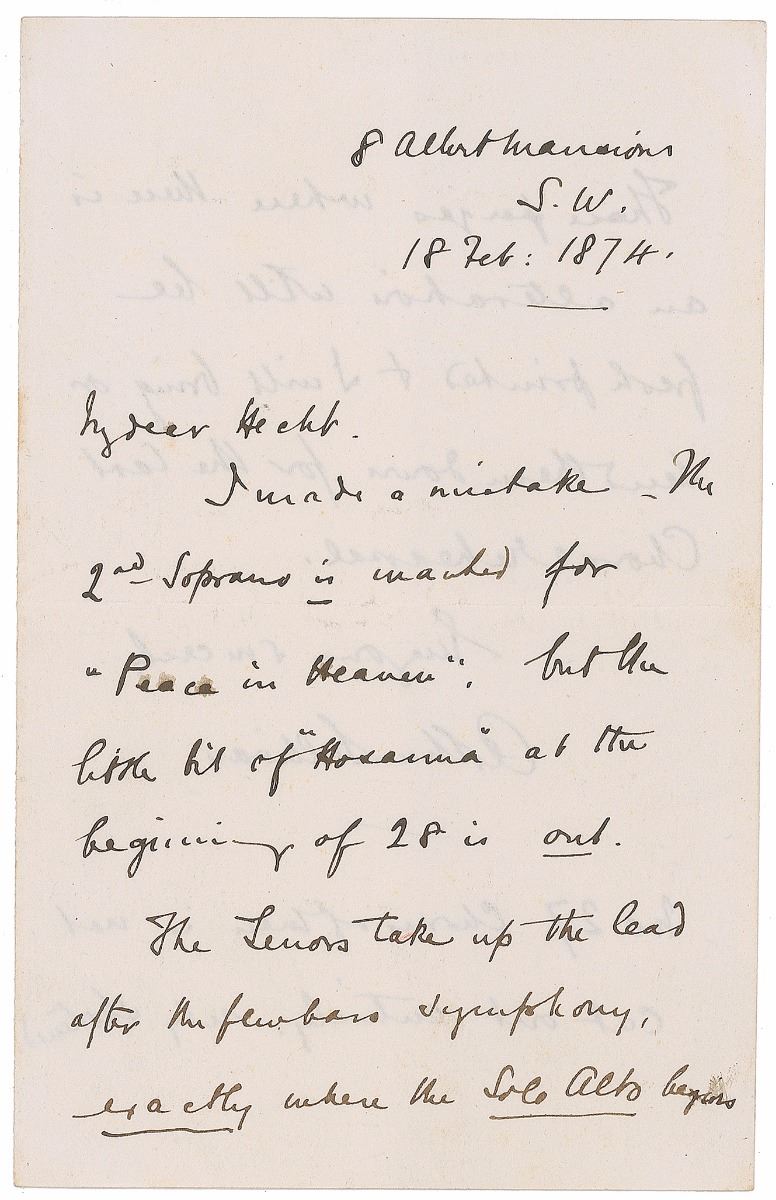 8 Albert Mansions
S. W.
18 Feb: 1874.
My dear Hecht.
I made a mistake – The
2nd Soprano is marked for
"Peace in Heaven", but the
little bit of "Hosanna" at the
beginning of 28 is out.
The Tenors take up the lead
after the few bars symphony,
exactly where the Solo Alto begins